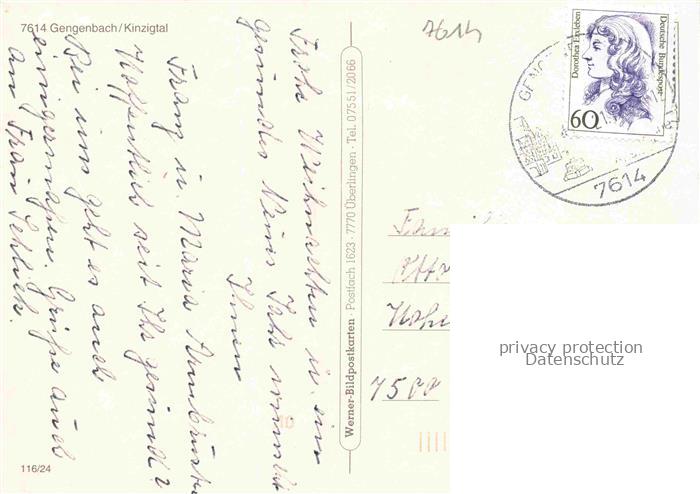 7614 Gengenbach/Kinzigtal
7614
Frohe Weihnachten u. ein
gesundes Neues Jahr wünscht
Ihnen
Franz u. Maria Armbruster
Hoffentlich seit Ihr gesund?
Bei uns geht es auch
einigermaßen. Grüße auch
an Frau
116/24
Werner-Bildpostkarten · Postfach 1623 · 7770 Überlingen · Tel. 07551/2066
Dorothea Erxleben
Deutsche Bundespost
60
7614
7500
privacy protection
Datenschutz